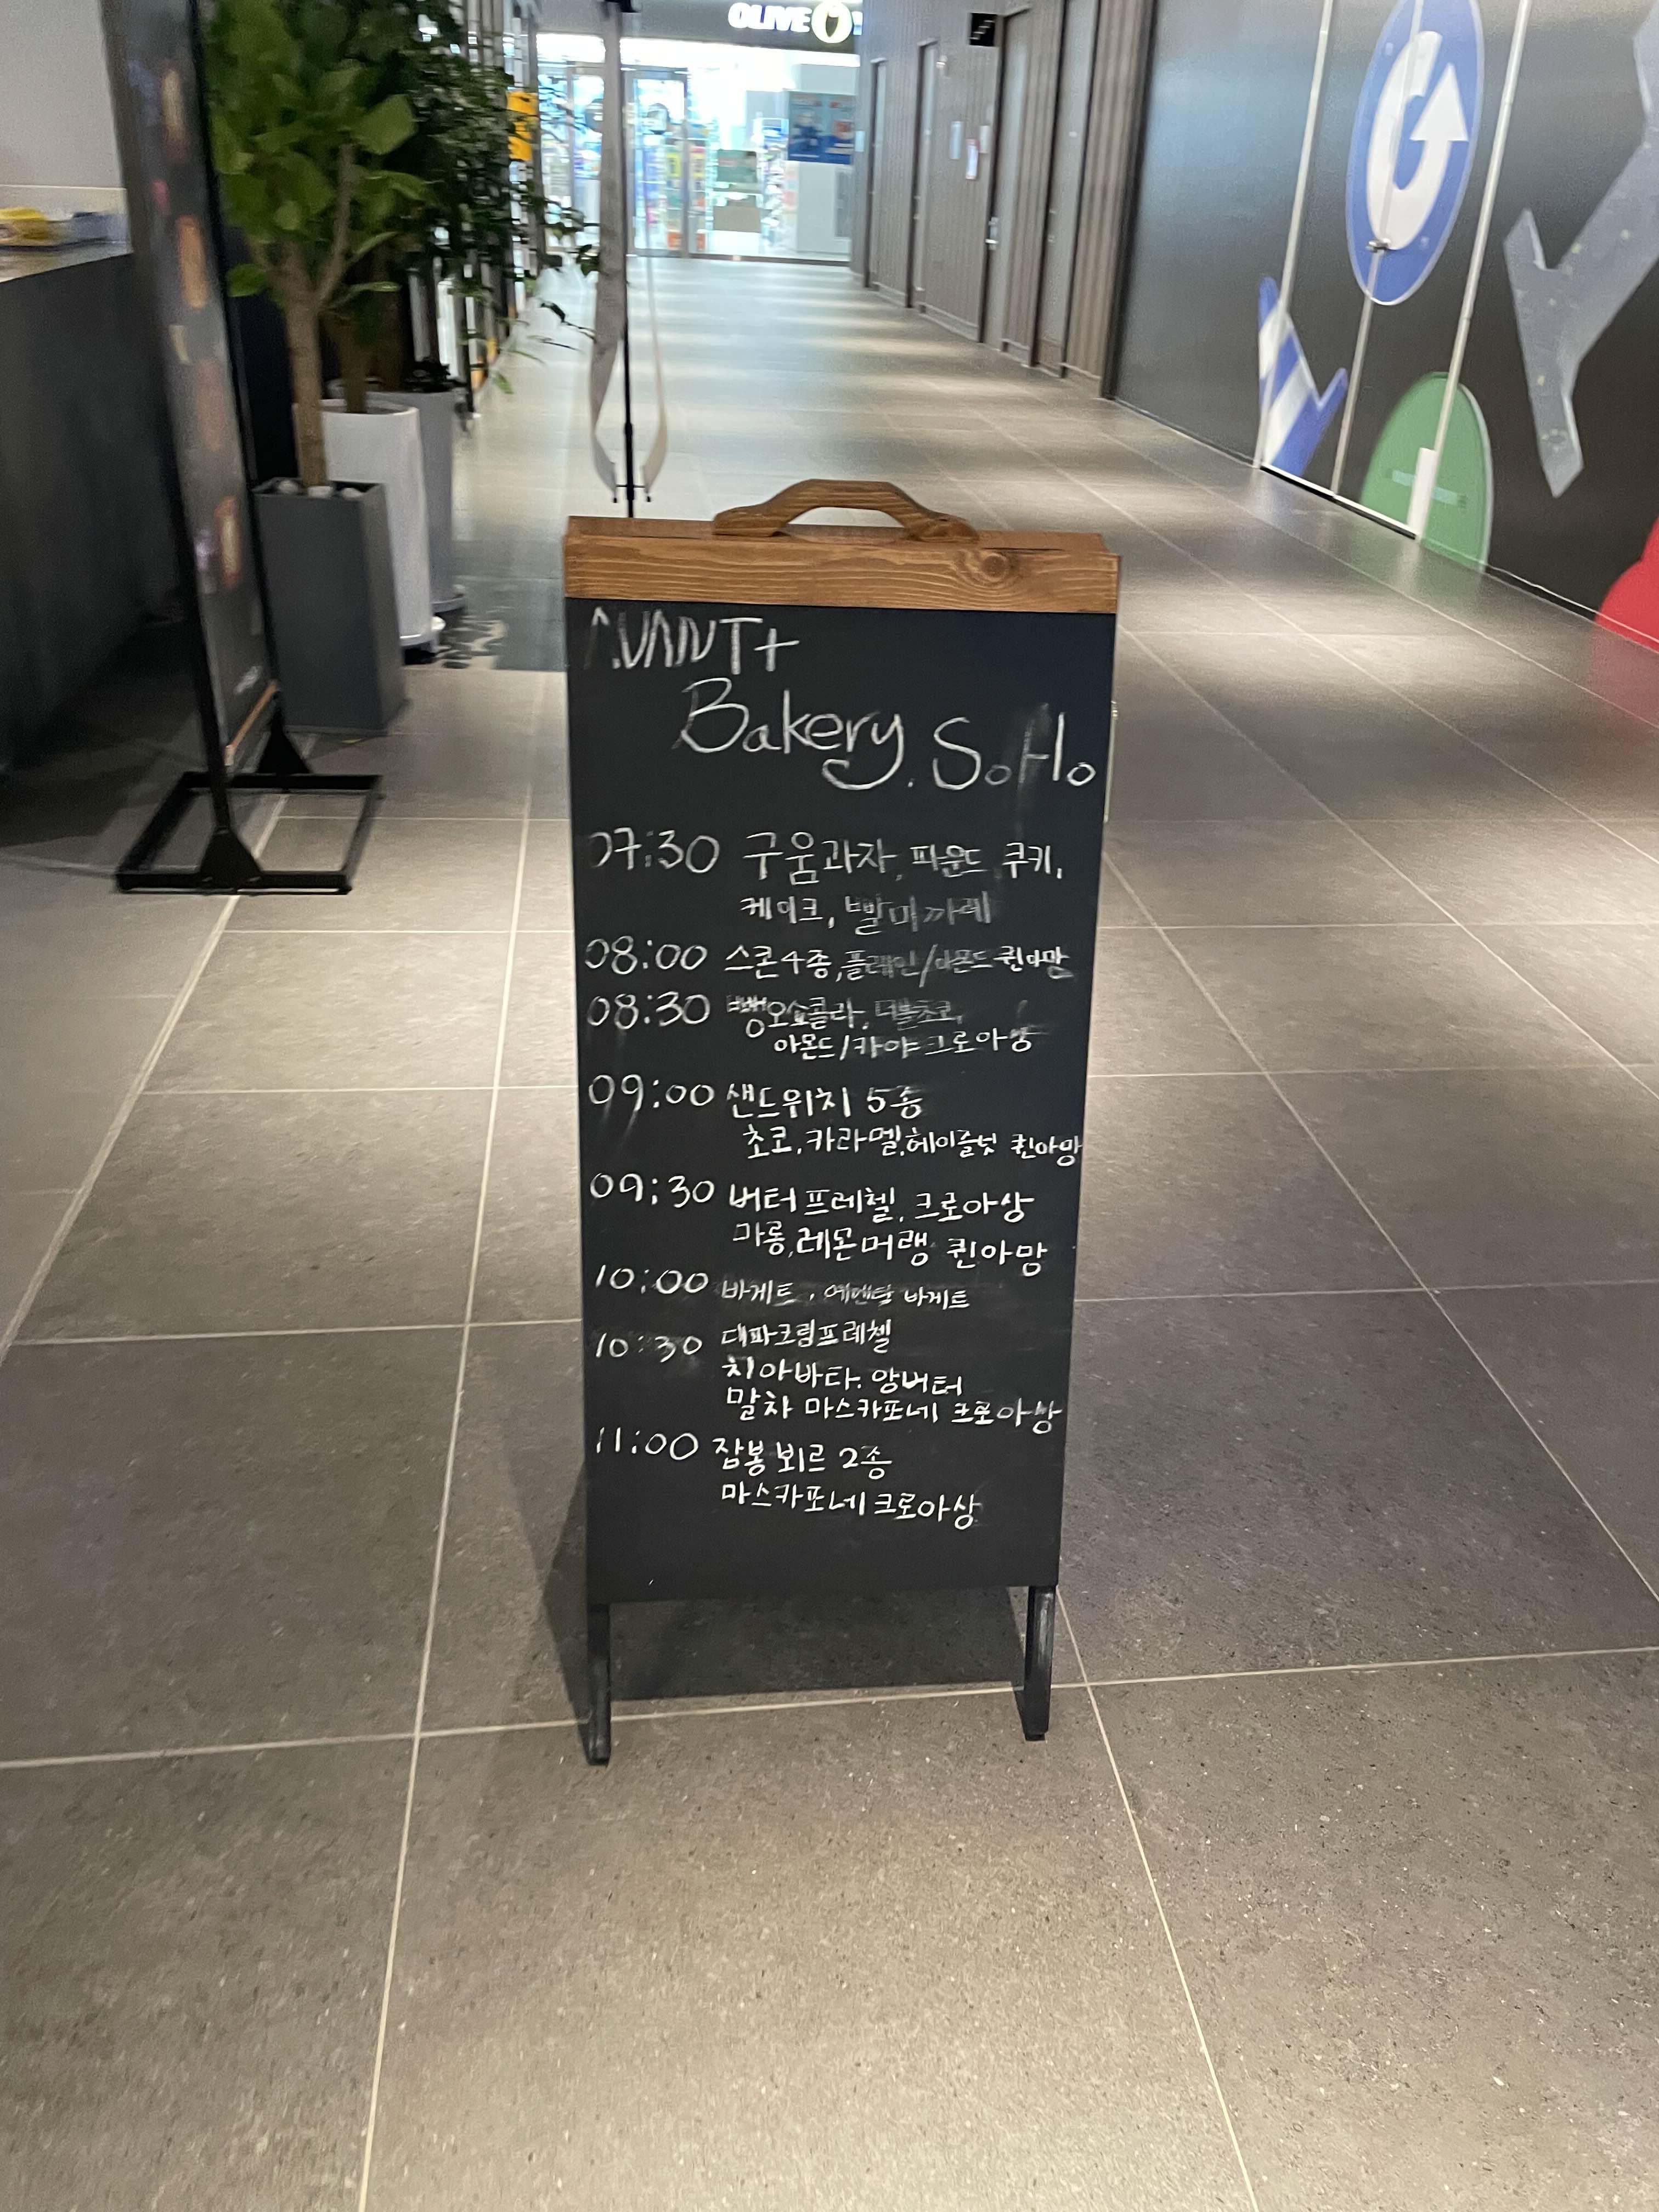 OLIVE
AVANT+
Bakery. SoHo
07:30 구움과자, 파운드, 쿠키,
케이크, 빨미까레
08:00 스콘4종, 플레인/아몬드 퀸아맘
08:30 뺑오쇼콜라, 더블초코,
아몬드/카야 크로아쌍
09:00 샌드위치 5종
초코, 카라멜, 헤이즐넛 퀸아망
09:30 버터프레첼, 크로아상
마롱, 레몬머랭 퀸아맘
10:00 바게트, 에멘탈 바게트
10:30 대파크림프레첼
치아바타. 앙버터
말차 마스카포네 크로아쌍
11:00 잠봉뵈르 2종
마스카포네 크로아상